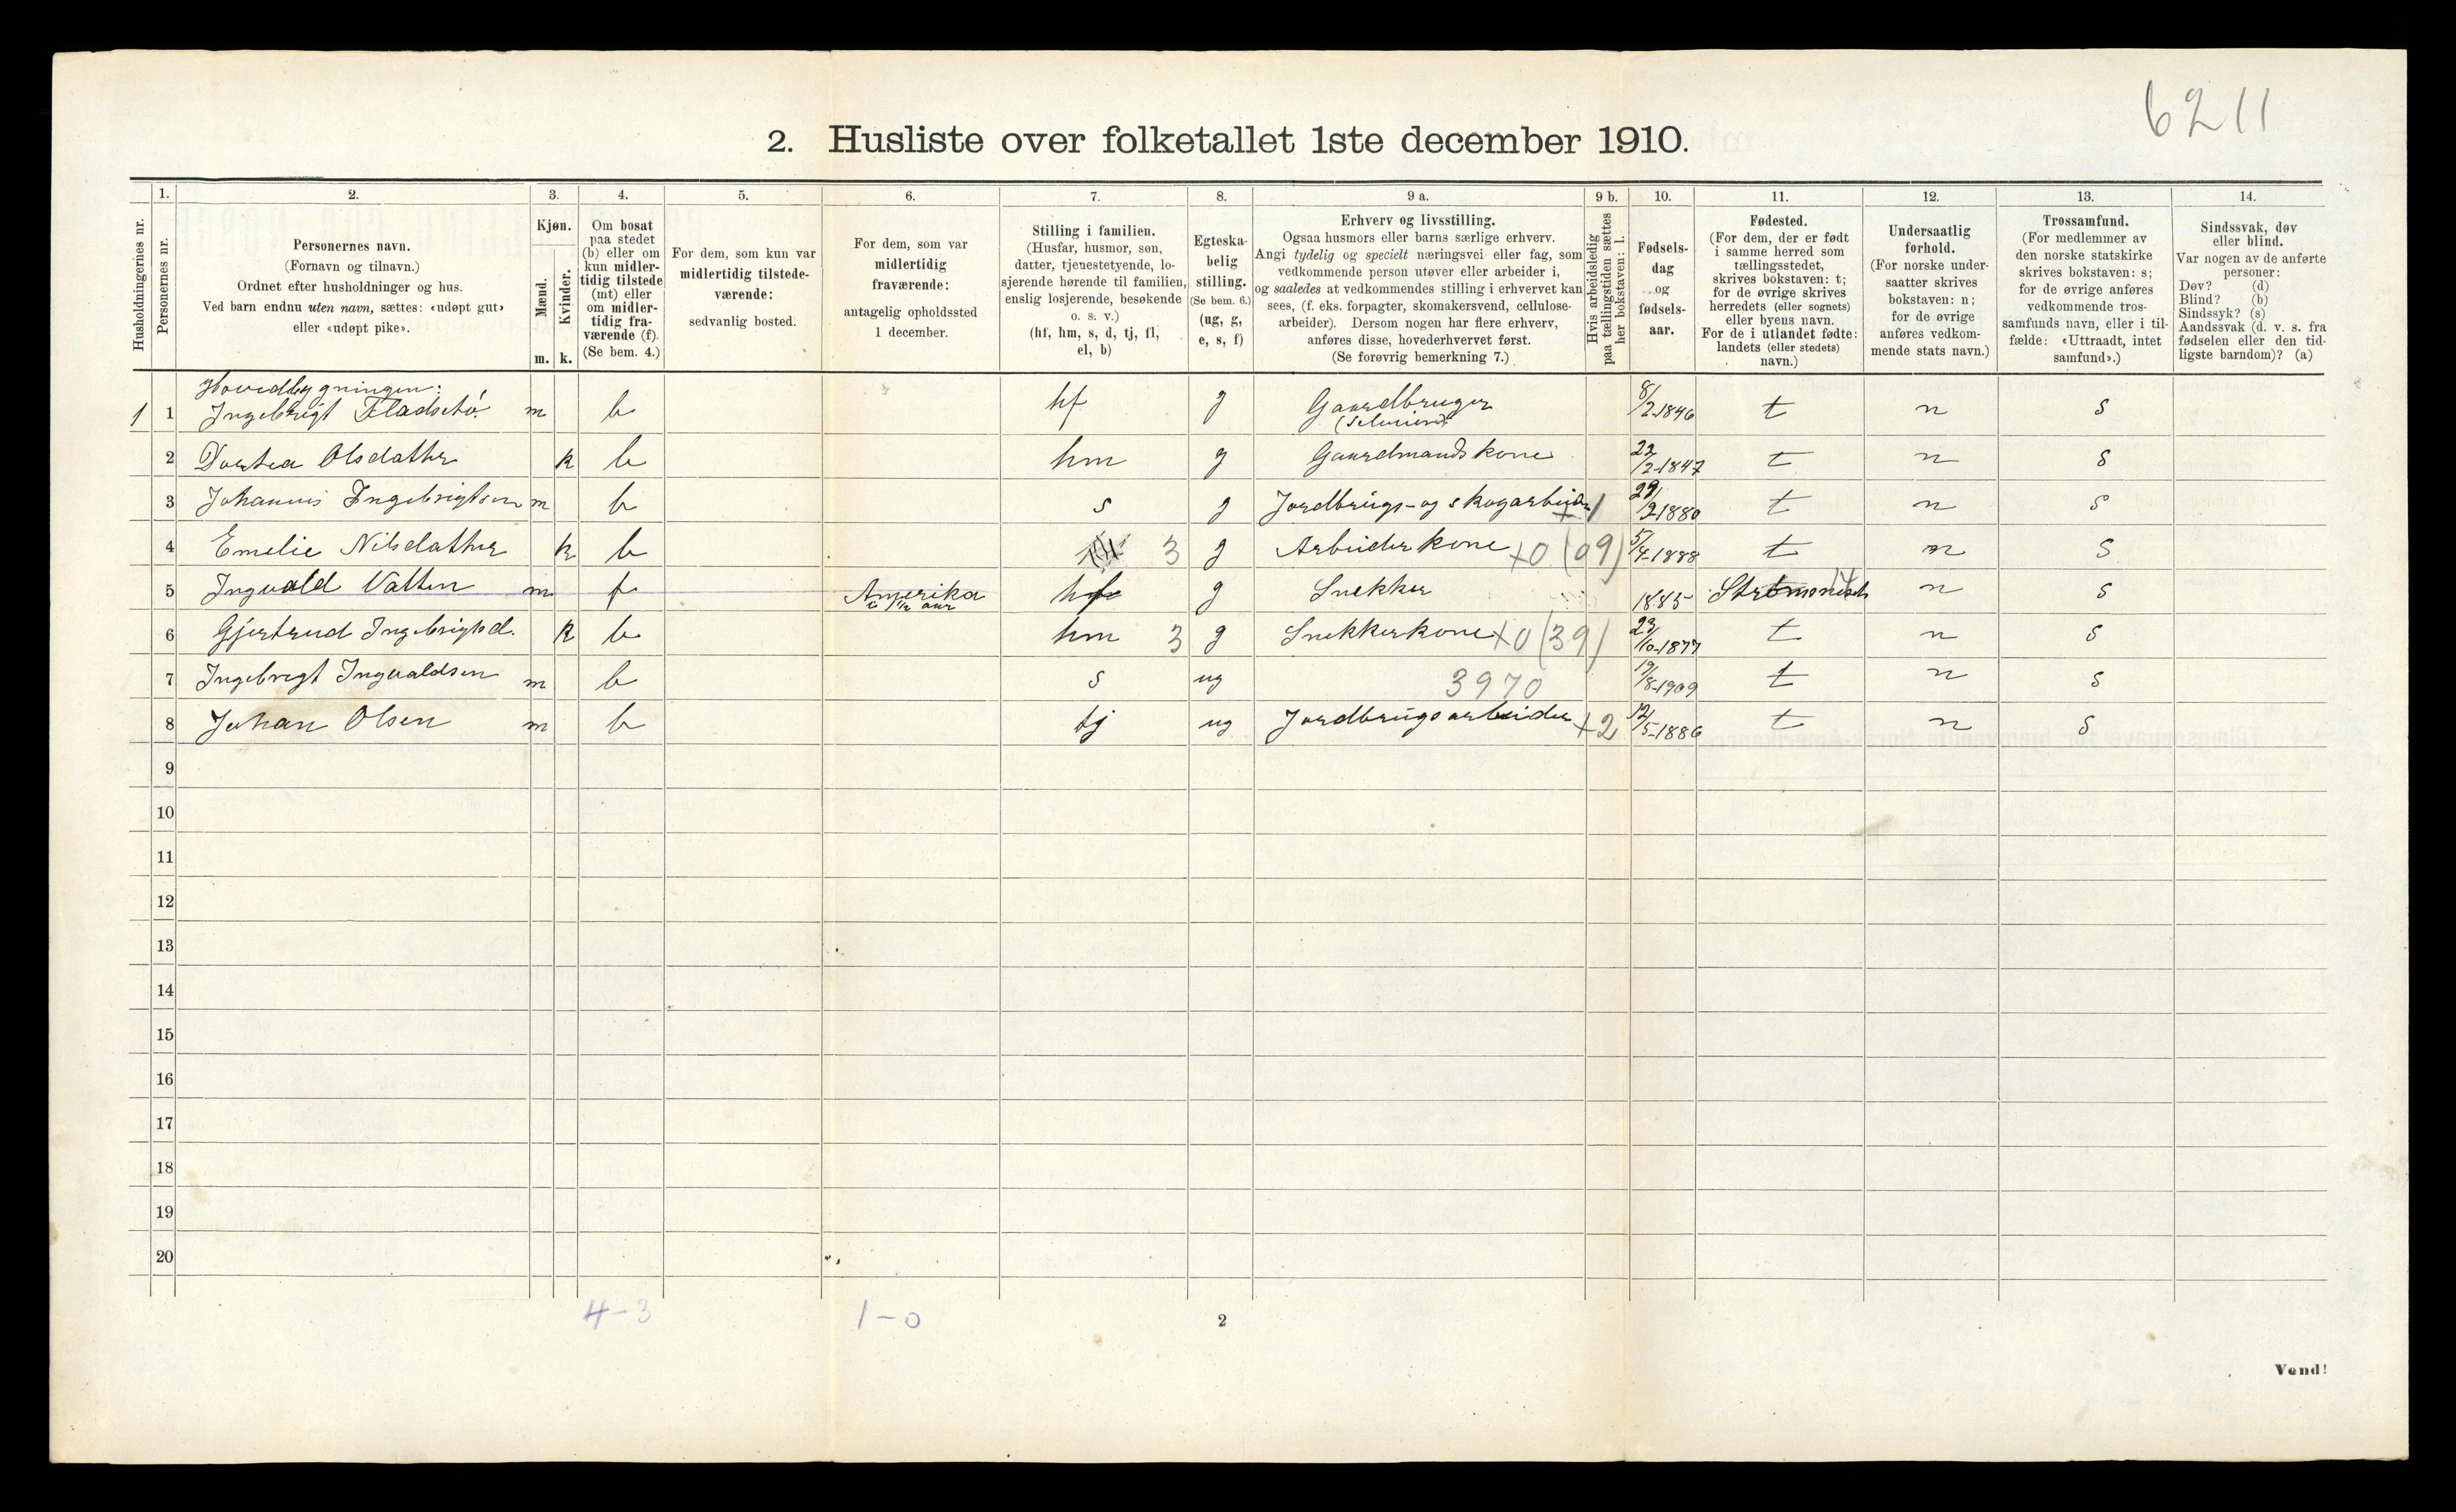 6211
2. Husliste over folketallet 1ste december 1910.
Husholdningernes nr.
1.
Personernes nr.
2.
Personernes navn.
(Fornavn og tilnavn.)
Ordnet efter husholdninger og hus.
Ved barn endnu uten navn, sættes: «udøpt gut»
eller «udøpt pike».
3.
Kjøn.
Mænd.
Kvinder.
m. k.
4.
Om bosat
paa stedet
(b) eller om
kun midler-
tidig tilstede
(mt) eller
om midler-
tidig fra-
værende (f).
(Se bem. 4.)
5.
For dem, som kun var
midlertidig tilstede-
værende:
sedvanlig bosted.
6.
For dem, som var
midlertidig
fraværende:
antagelig opholdssted
1 december.
7.
Stilling i familien.
(Husfar, husmor, søn,
datter, tjenestetyende, lo-
sjerende hørende til familien,
enslig losjerende, besøkende
o. s. v.)
(hf, hm, s, d, tj, fl,
el, b)
8.
Egteska-
belig
stilling.
(Se bem. 6.)
(ug, g,
e, s, f)
9 a.
Erhverv og livsstilling.
Ogsaa husmors eller barns særlige erhverv.
Angi tydelig og specielt næringsvei eller fag, som
vedkommende person utøver eller arbeider i,
og saaledes at vedkommendes stilling i erhvervet kan
sees, (f. eks. forpagter, skomakersvend, cellulose-
arbeider). Dersom nogen har flere erhverv,
anføres disse, hovederhvervet først.
(Se forøvrig bemerkning 7.)
9 b.
Hvis arbeidsledig
paa tællingstiden sættes
her bokstaven: l.
10.
Fødsels-
dag
og
fødsels-
aar.
11.
Fødested.
(For dem, der er født
i samme herred som
tællingsstedet,
skrives bokstaven: t;
for de øvrige skrives
herredets (eller sognets)
eller byens navn.
For de i utlandet fødte:
landets (eller stedets)
navn.)
12.
Undersaatlig
forhold.
(For norske under-
saatter skrives
bokstaven: n;
for de øvrige
anføres vedkom-
mende stats navn.)
13.
Trossamfund.
(For medlemmer av
den norske statskirke
skrives bokstaven: s;
for de øvrige anføres
vedkommende tros-
samfunds navn, eller i til-
fælde: «Uttraadt, intet
samfund».)
14.
Sindssvak, døv
eller blind.
Var nogen av de anførte
personer:
Døv? (d)
Blind? (b)
Sindssyk? (s)
Aandssvak (d. v. s. fra
fødselen eller den tid-
ligste barndom)? (a)
Hovedbygningen:
1 1 Ingebrigt Fladsetø m b hf g Gaardbruger 8/2-1846 t n s
(Selveiend)
2 Dortea Olsdatter k b hm g Gaardmandskone 22/2-1847 t n s
3 Johannis Ingebrigtsen m b s g Jordbrugs- og skogarbeider +1 29/9-1880 t n s
4 Emelie Nilsdatter k b 3 g Arbeiderkone +0 (09) 5/4-1888 t n s
5 Ingvald Vatten m f Amerika hf g Snekker 1885 n s
i 1½ aar
6 Gjertrud Ingebrigtsd. k b hm 3 g Snekkerkone +0 (39) 23/10-1877 t n s
7 Ingebrigt Ingvaldsen m b s ug 3970 19/8-1909 t n s
8 Johan Olsen m b tj ug Jordbrugsarbeider +2 12/5-1886 t n s
9
10
11
12
13
14
15
16
17
18
19
20
4-3 1-0
2
Vend!